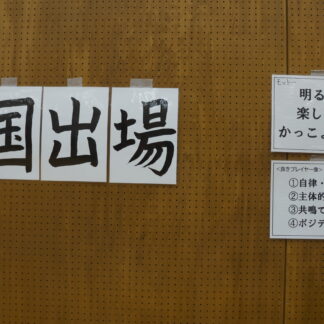 国出場
モットー
明る
楽し
かっこよ
<良きプレイヤー像>
①自律・
②主体的
③共鳴で
④ポジテ